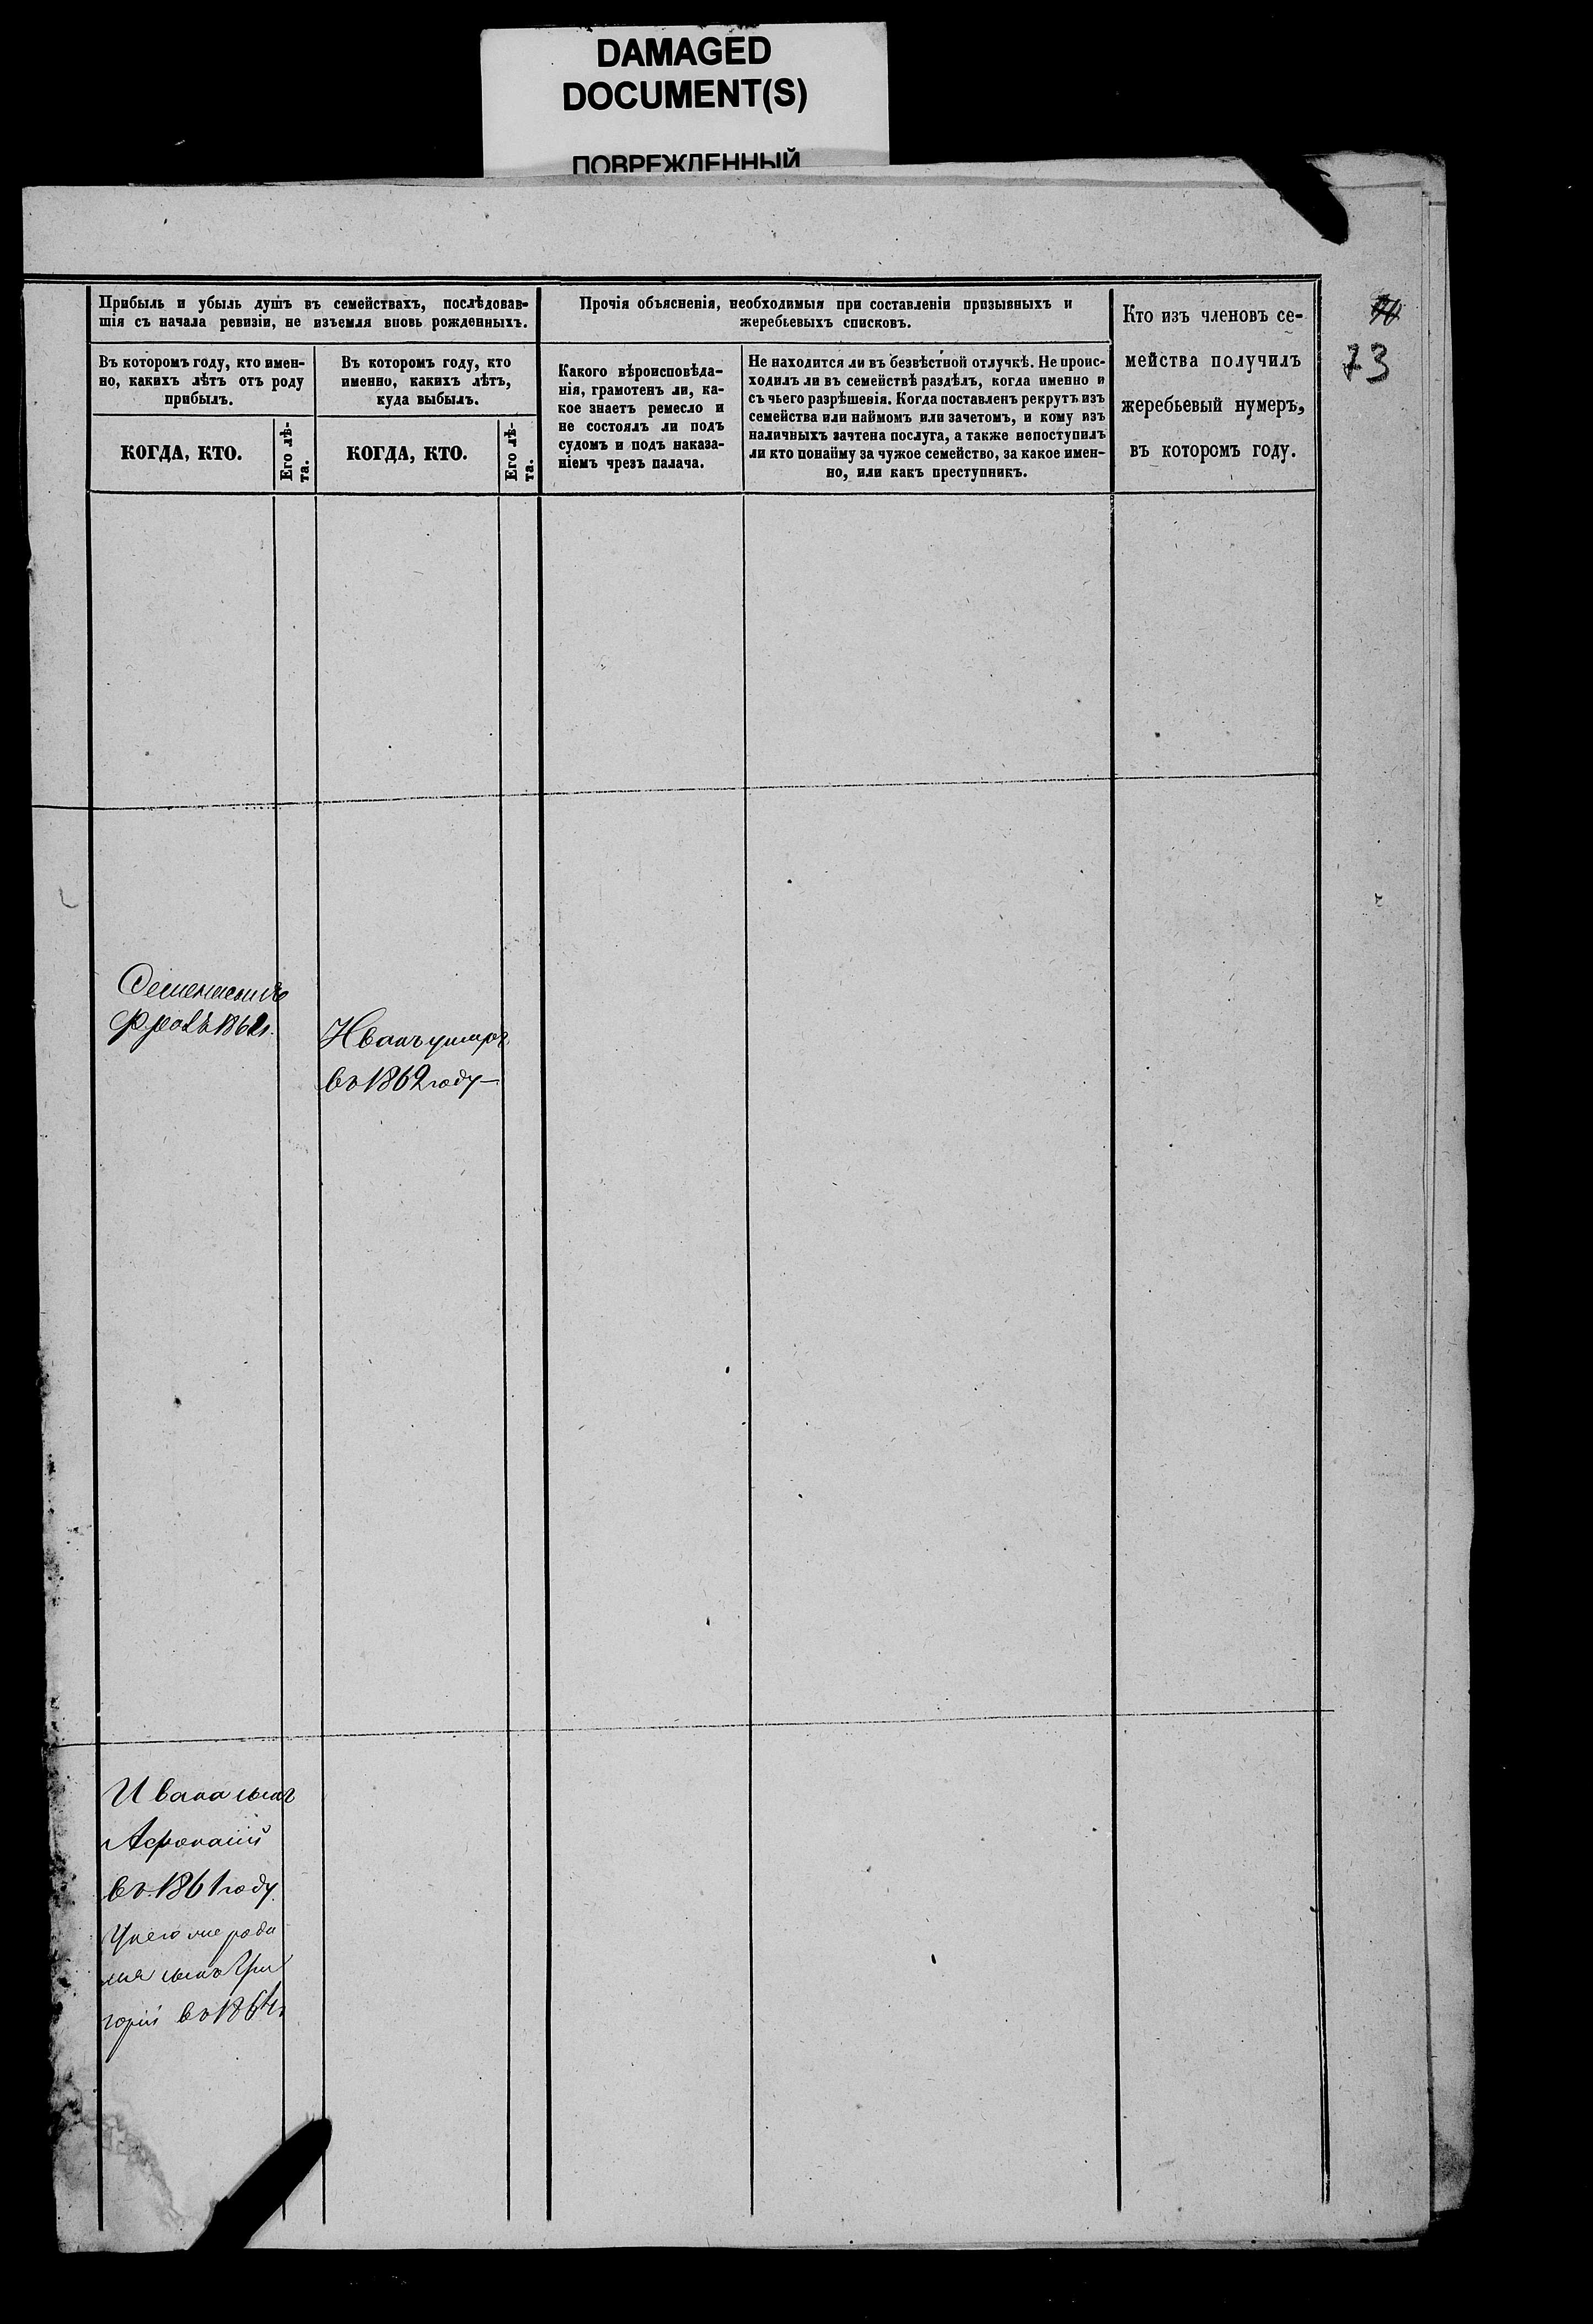 DAMAGED
DOCUMENT(S)
ПОВРЕЖДЕННЫЙ
Прибыль и убыль душъ въ семействахъ, послѣдовав-
шія съ начала ревизіи, не изъемля вновь рожденныхъ.
Прочія объясненія, необходимыя при составленіи призывныхъ и
жеребьевыхъ списковъ.
Кто изъ членовъ се-
мейства получилъ
жеребьевый нумеръ,
въ которомъ году.
73
Въ которомъ году, кто имен-
но, какихъ лѣтъ отъ роду
прибылъ.
Въ которомъ году, кто
именно, какихъ лѣтъ,
куда выбылъ.
Какого вѣроисповѣда-
нія, грамотенъ ли, ка-
кое знаетъ ремесло и
не состоялъ ли подъ
судомъ и подъ наказа-
ніемъ чрезъ палача.
Не находится ли въ безвѣстной отлучкѣ. Не проис-
ходилъ ли въ семействѣ раздѣлъ, когда именно и
съ чьего разрѣшенія. Когда поставленъ рекрутъ изъ
семейства или наймомъ или зачетомъ, и кому изъ
наличныхъ зачтена послуга, а также непоступилъ
ли кто понайму за чужое семейство, за какое имен-
но, или какъ преступникъ.
КОГДА, КТО.
Его лѣ-
та.
КОГДА, КТО.
Его лѣ-
та.
Иванъ умеръ
въ 1862 году
Ивана сынъ
Афонасій
въ 1861 году
У него же роди
лся сынъ Гри
горій въ 1864 г.